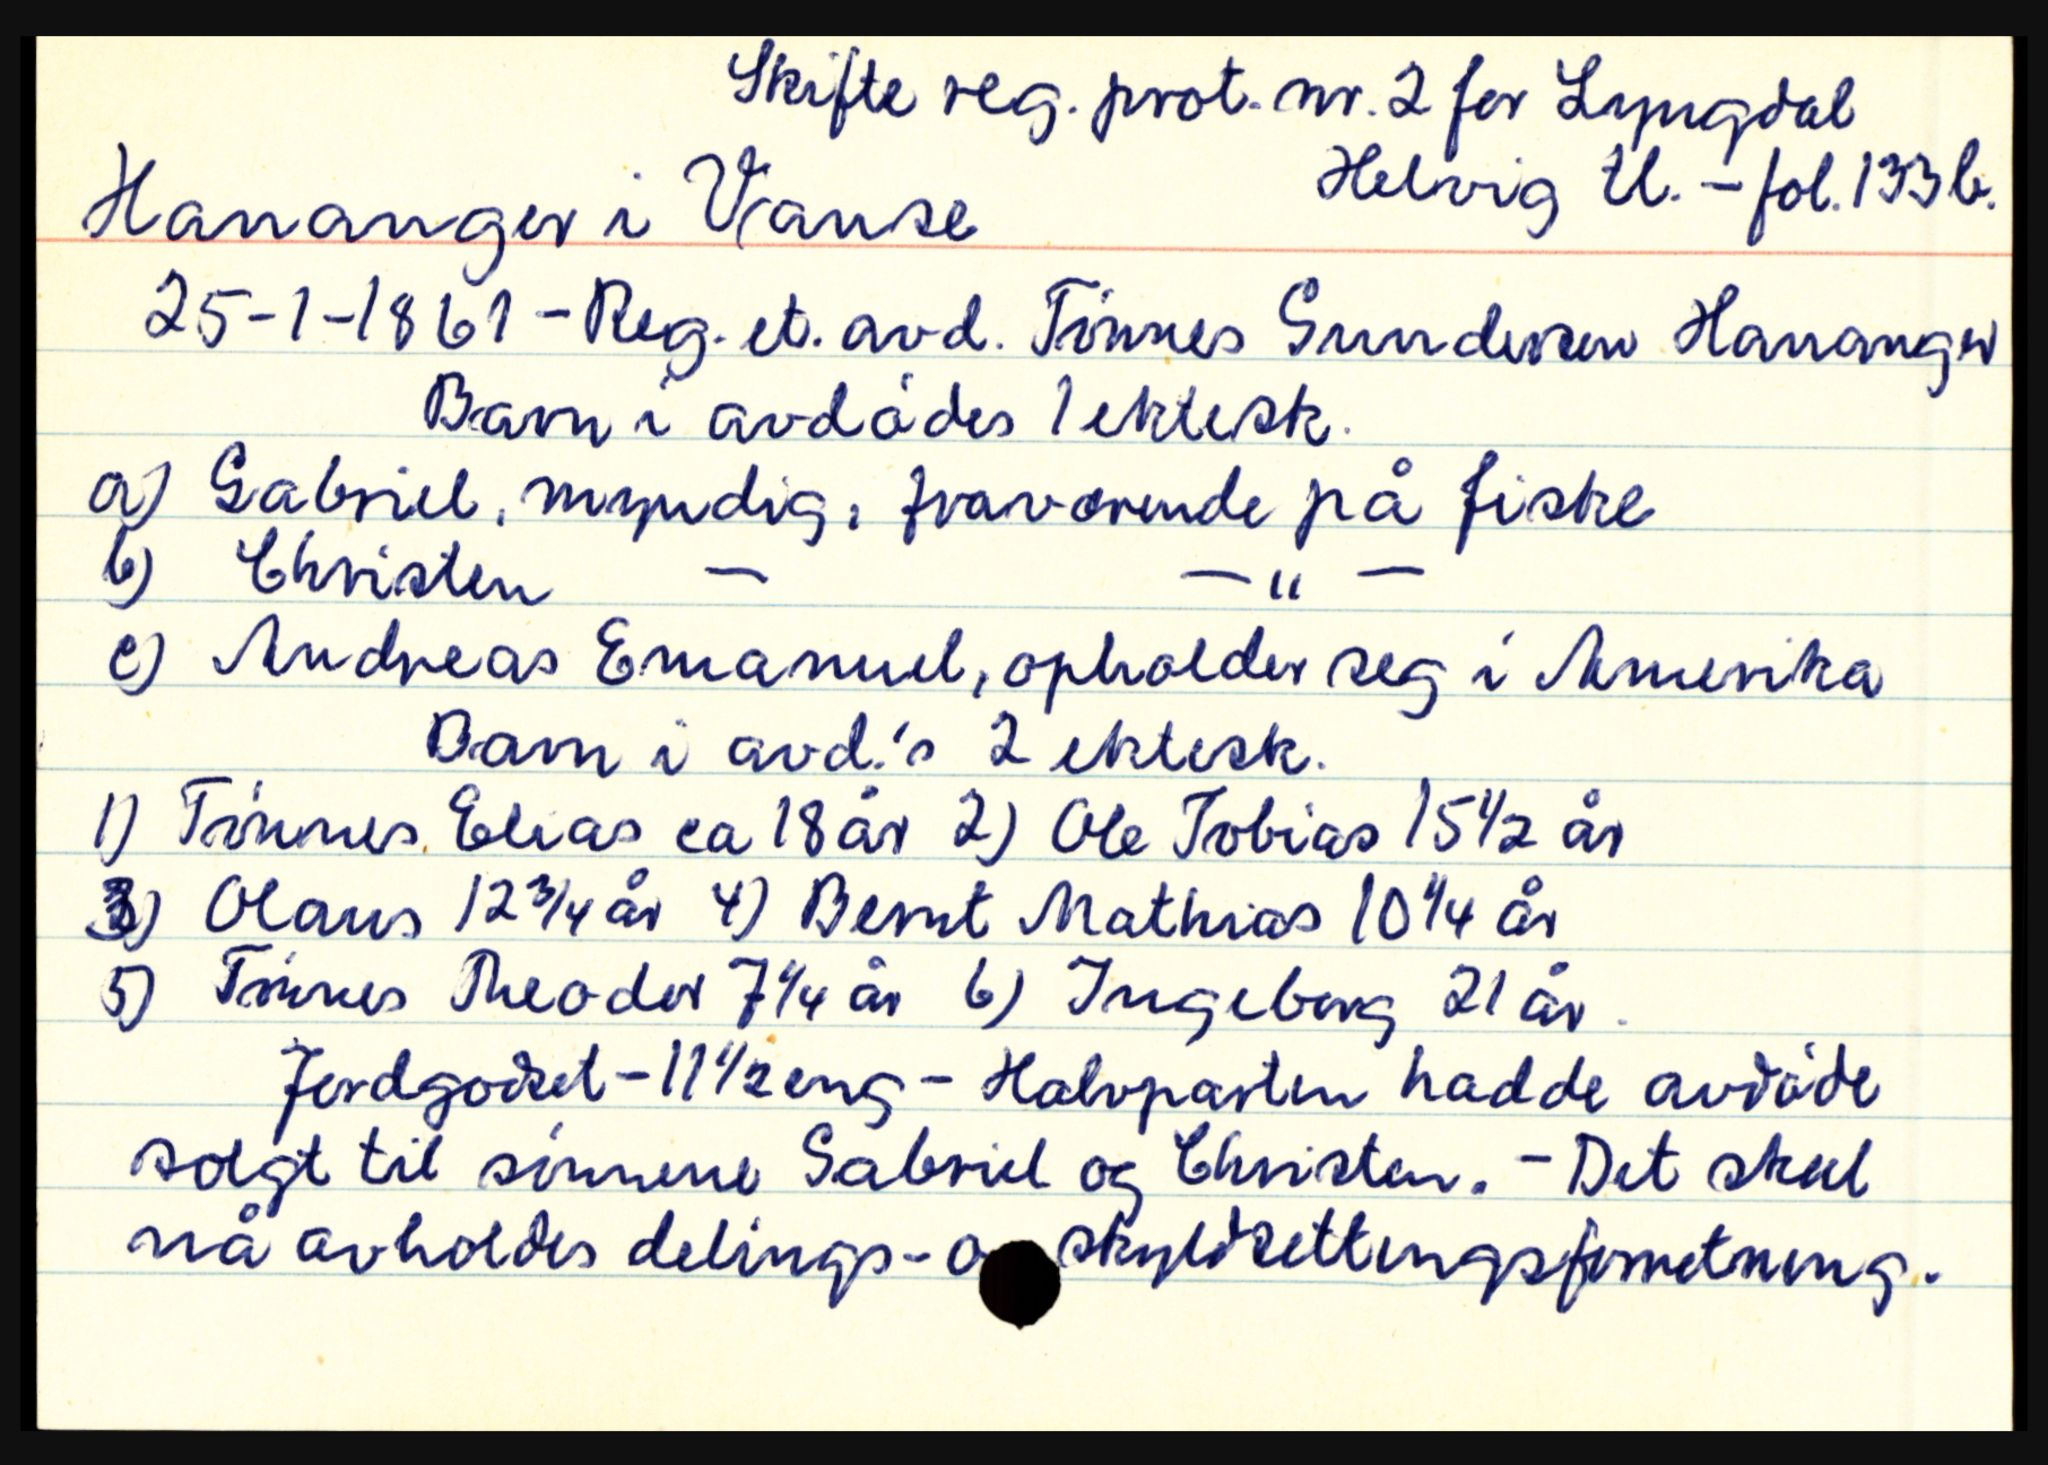 Skifte reg. prot. nr. 2 for Lyngdal
Hananger i Vanse Helvig U. - fol. 133 b.
25-1-1861 - Reg. et. avd. Tönnes Gundersen Hananger
Barn i avdödes 1 ektesk.
a) Gabriel, myndig, fraværende på fiske
b) Christen — — " —
c) Andreas Emanuel, opholder seg i Amerika
Barn i avd.'s 2 ektesk.
1) Tönnes Elias ca 18 år 2) Ole Tobias 15 1/2 år
3) Olaus 12 3/4 år 4) Bernt Mathias 10 1/4 år
5) Tönnes Theodor 7 1/4 år 6) Ingeborg 21 år.
Jordgodset - 11 1/2 eng - Halvparten hadde avdöde
solgt til sönnene Gabriel og Christen. - Det skal
nå avholdes delings- o skyldsettingsforretning.